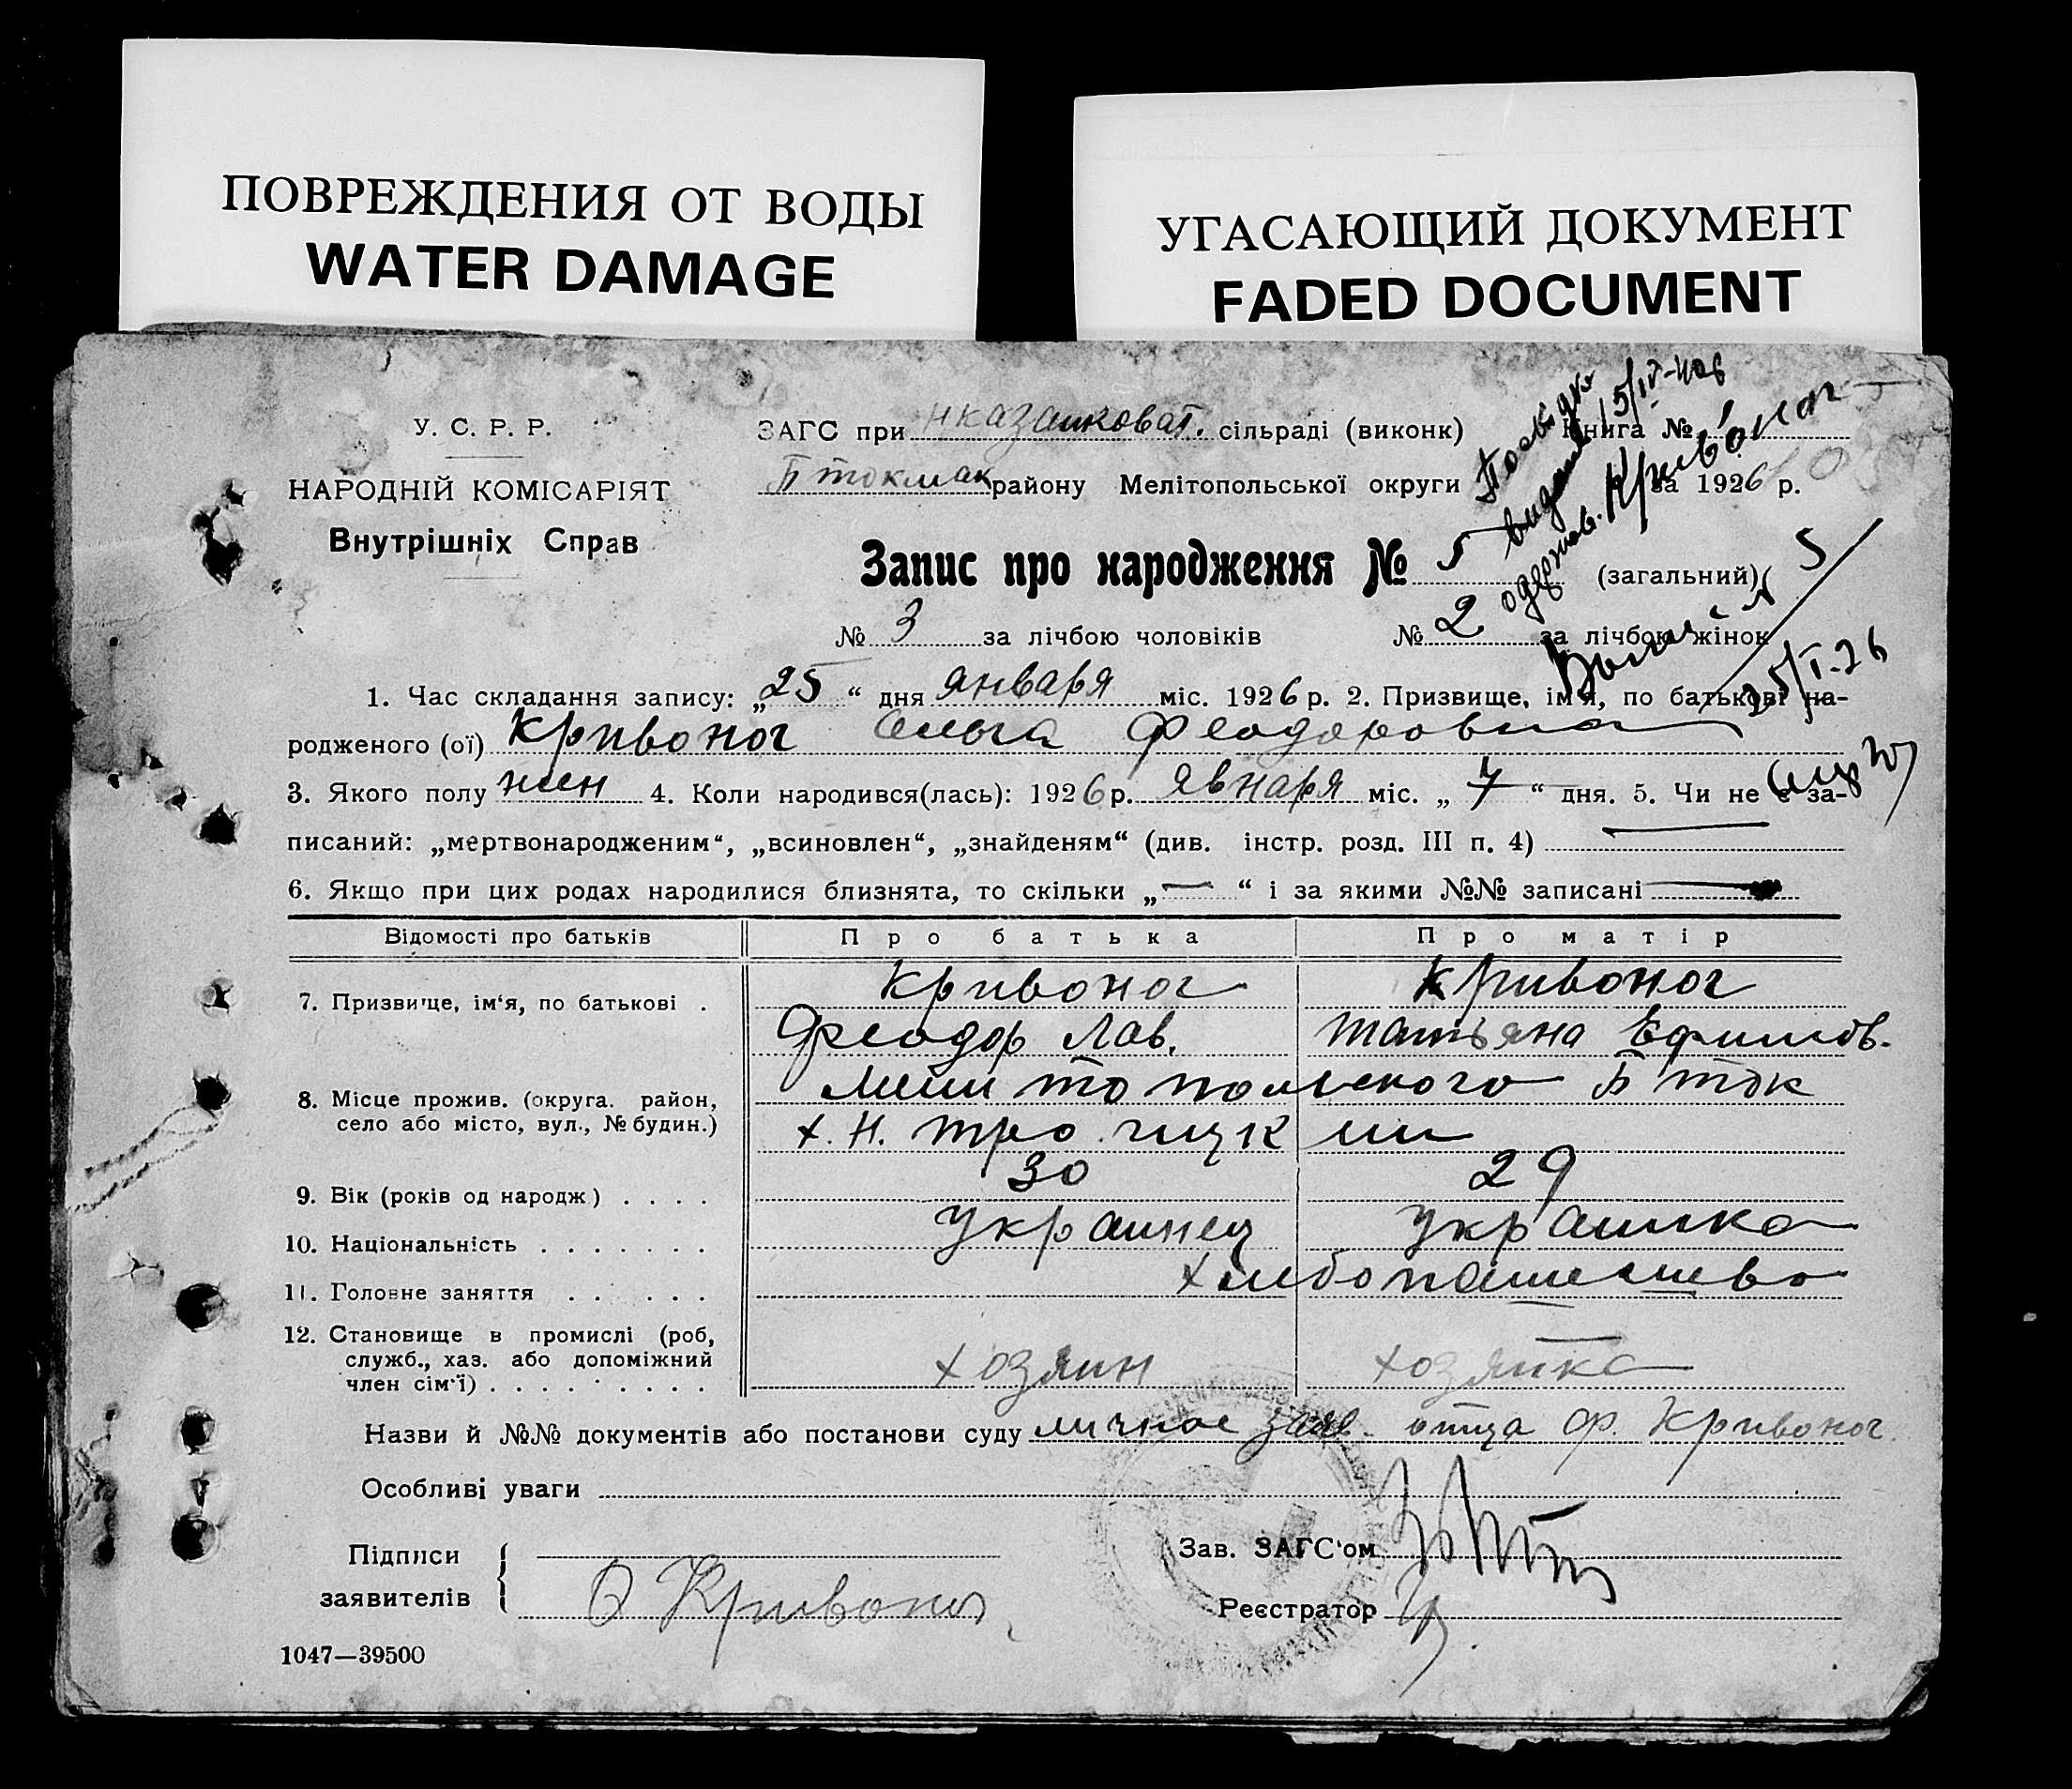 ПОВРЕЖДЕНИЯ ОТ ВОДЫ
WATER DAMAGE
УГАСАЮЩИЙ ДОКУМЕНТ
FADED DOCUMENT
У. С. Р. Р.
НАРОДНІЙ КОМІСАРІЯТ
Внутрішніх Справ
ЗАГС при нказанковат. сільраді (виконк) Книга №
Б токмак району Мелітопольської округи за 1926 р.
5/IV-40б
видано
Кривоног
Запис про народження № 5 (загальний)
№ 3 за лічбою чоловіків № 2 за лічбою жінок
5
25/I-26
1. Час складання запису: „25“ дня января міс. 1926 р. 2. Призвище, ім'я, по батькові на-
родженого (ої) Кривоног Ольга Феодоровна
3. Якого полу жен 4. Коли народився(лась): 1926 р. явнаря міс. „7“ дня. 5. Чи не є за-
писаний: „мертвонародженим“, „всиновлен“, „знайденям“ (див. інстр. розд. III п. 4)
6. Якщо при цих родах народилися близнята, то скільки „—“ і за якими №№ записані —
Відомості про батьків Про батька Про матір
7. Призвище, ім'я, по батькові . Кривоног Кривоног
Феодор Лав. Татьяна Ефимов.
8. Місце прожив. (округа. район, село або місто, вул., № будин.) Мелитопольского Б ток
х. Н. Троицк
9. Вік (років од народж) . . . . 30 29
10. Національність . . . . . . . украинец украинка
11. Головне заняття . . . . . . хлебопашество
12. Становище в промислі (роб, служб., хаз. або допоміжний член сім'ї) . . . . . . . . . хозяин хозяйка
Назви й №№ документів або постанови суду личное заяв. отца Ф. Кривоног.
Особливі уваги
Підписи заявителів Кривоног
Зав. ЗАГС'ом
Реєстратор
1047—39500